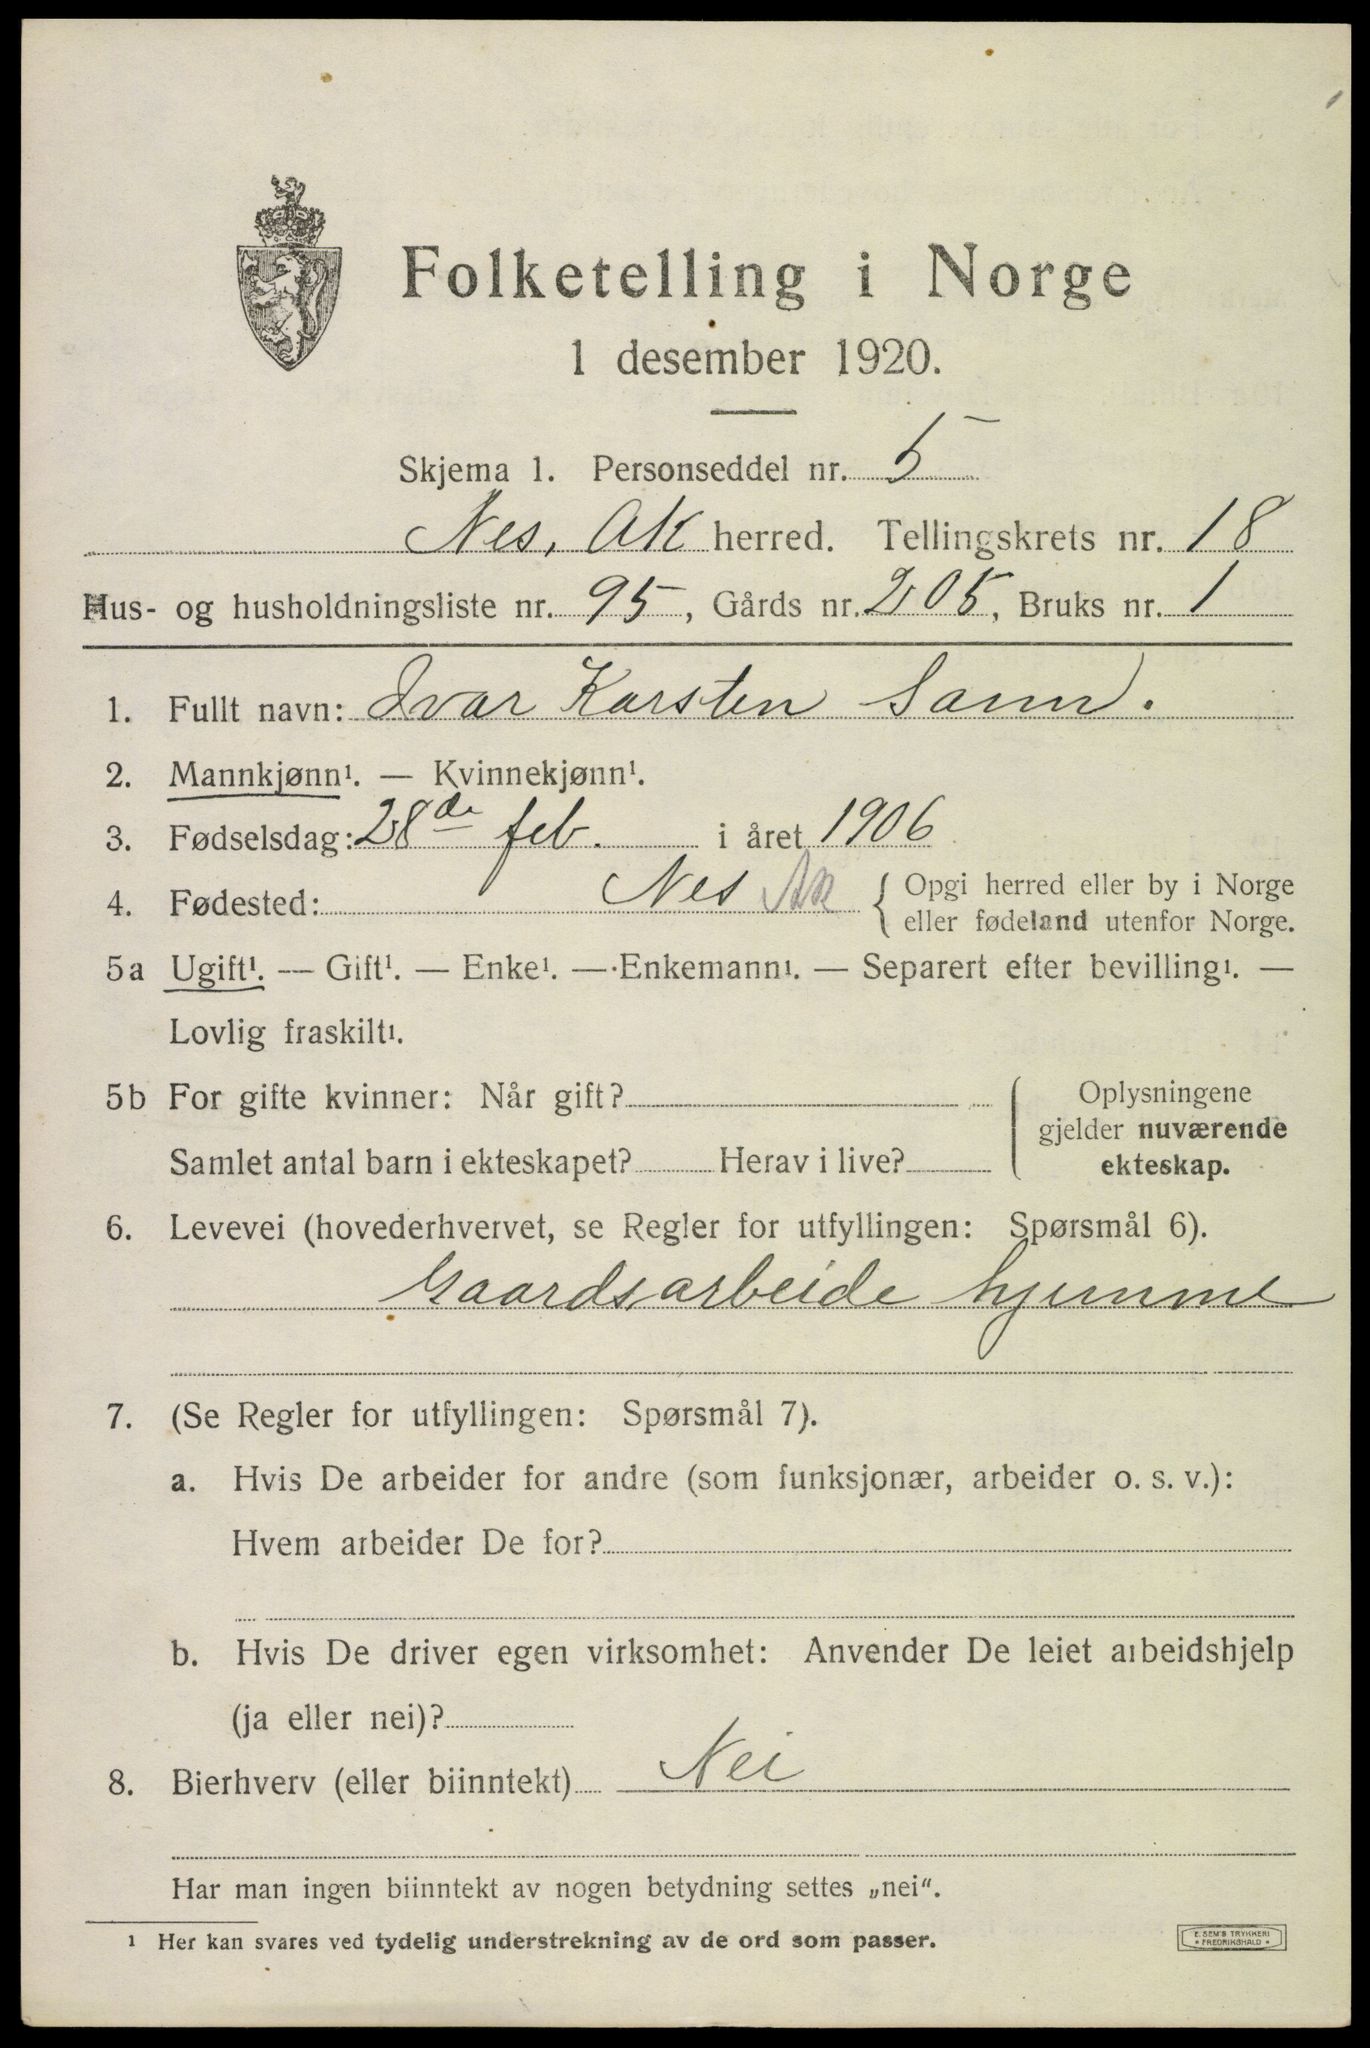 Folketelling i Norge
1 desember 1920.
Skjema 1. Personseddel nr. 5
Nes, Ak herred. Tellingskrets nr. 18
Hus- og husholdningsliste nr. 95, Gårds nr. 205, Bruks nr. 1
1. Fullt navn: Ivar Karsten
2. Mannkjønn¹. — Kvinnekjønn¹.
3. Fødselsdag: 28de feb. i året 1906
4. Fødested: Nes Ak { Opgi herred eller by i Norge
eller fødeland utenfor Norge.
5a Ugift¹. — Gift¹. — Enke¹. — Enkemann¹. — Separert efter bevilling¹. —
Lovlig fraskilt¹.
5b For gifte kvinner: Når gift? Oplysningene
gjelder nuværende
Samlet antal barn i ekteskapet? Herav i live? ekteskap.
6. Levevei (hovederhvervet, se Regler for utfyllingen: Spørsmål 6).
Gaardsarbeide hjemme
7. (Se Regler for utfyllingen: Spørsmål 7).
a. Hvis De arbeider for andre (som funksjonær, arbeider o. s. v.):
Hvem arbeider De for?
b. Hvis De driver egen virksomhet: Anvender De leiet arbeidshjelp
(ja eller nei)?
8. Bierhverv (eller biinntekt) Nei
Har man ingen biinntekt av nogen betydning settes „nei“.
¹ Her kan svares ved tydelig understrekning av de ord som passer.
E. SEM'S TRYKKERI
* FREDRIKSHALD *